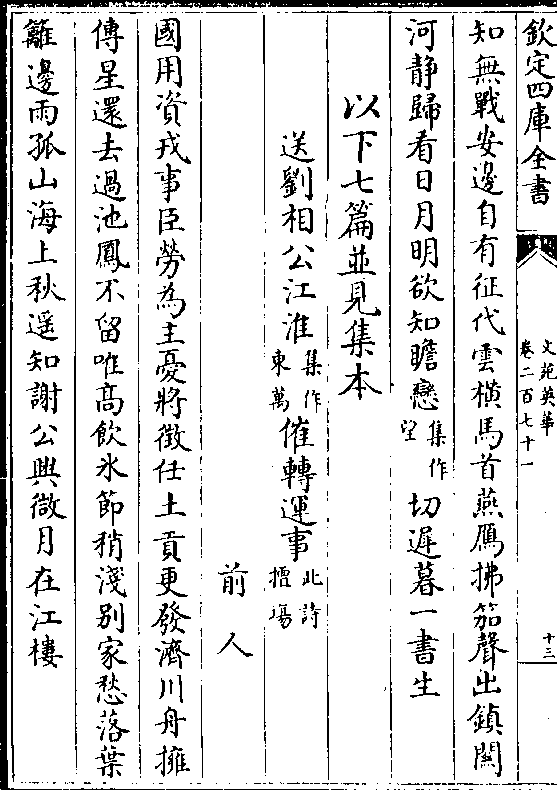 欽定四庫全書
文苑英華
卷二百七十一
十三
知無戰安邊自有征代雲横馬首燕鴈拂笳聲出鎮闗
河静歸看日月明欲知瞻戀集作望切遲暮一書生
以下七篇並見集本
送劉相公江淮集作東萬催轉運事此詩擅場
前人
國用資戎事臣勞為主憂將徴任土貢更發濟川舟擁
傳星還去過池鳳不留唯髙飲氷節稍淺别家愁落葉
籬邊雨孤山海上秋遥知謝公興微月在江樓